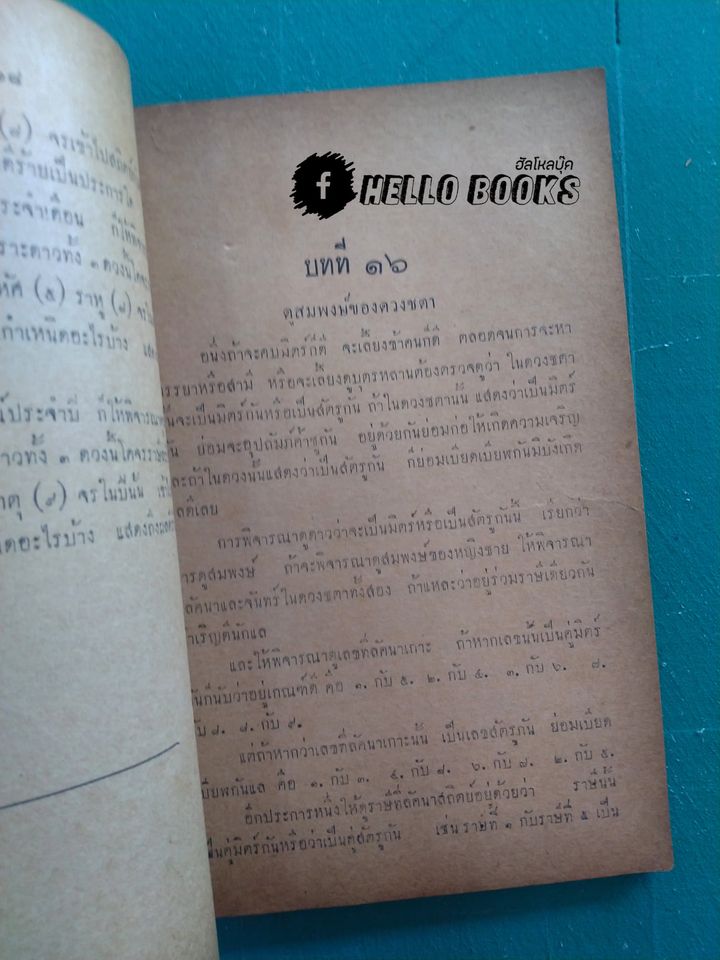 ๑๘
(๘) จรเข้าไปสถิตย์
ดีร้ายเป็นประการใด
ระจำเดือน ก็ให้พิจ
ราะดาวทั้ง ๓ ดวงนี้โคจร
หัศ (๕) ราหู (๘) จร
กำเหนิดอะไรบ้าง แสด
ประจำปี ก็ให้พิจารณา
าวทั้ง ๓ ดวงนี้โคจร
(๙) จรในปีนั้น
ดอะไรบ้าง แสดงถึงผล
ฮัลโหลบุ๊ค
f HELLO BOOKS
บทที่ ๑๖
ดูสมพงษ์ของดวงชตา
อนึ่งถ้าจะคบมิตร์ก็ดี จะเลี้ยงข้าคนก็ดี ตลอดจนการจะหา
รรยาหรือสามี หรือจะเลี้ยงดูบุตรหลานต้องตรวจดูว่า ในดวงชตา
นั้นจะเป็นมิตร์กันหรือเป็นสัตรูกัน ถ้าในดวงชตานั้น แสดงว่าเป็นมิตร์
กัน ย่อมจะอุปถัมภ์ค้ำชูกัน อยู่ด้วยกันย่อมก่อให้เกิดความเจริญ
และถ้าในดวงนั้นแสดงว่าเป็นสัตรูกัน ก็ย่อมเบียดเบียฬกันมิบังเกิด
ลดีเลย
การพิจารณาดูดาวว่าจะเป็นมิตร์หรือเป็นสัตรูกันนี้ เรียกว่า
ารดูสมพงษ์ ถ้าจะพิจารณาดูสมพงษ์ของหญิงชาย ให้พิจารณา
ลัคนาและจันทร์ในดวงชตาทั้งสอง ถ้าแหละว่าอยู่ร่วมราษีเดียวกัน
ำเริญดีนักแล
และให้พิจารณาดูเลขที่ลัคนาเกาะ ถ้าหากเลขนั้นเป็นคู่มิตร์
ันก็นับว่าอยู่เกณฑ์ดี คือ ๑. กับ ๕. ๒. กับ ๔. ๓. กับ ๖. ๗.
ับ ๘. ๘. กับ ๙.
แต่ถ้าหากว่าเลขที่ลัคนาเกาะนั้น เป็นเลขสัตรูกัน ย่อมเบียด
บียฬกันแล คือ ๑. กับ ๓. ๔. กับ ๘. ๖. กับ ๗. ๒. กับ ๕.
อีกประการหนึ่งให้ดูราษีที่ลัคนาสถิตย์อยู่ด้วยว่า ราษีนั้น
ป็นคู่มิตร์กันหรือว่าเป็นคู่สัตรูกัน เช่น ราษีที่ ๑ กับราษีที่ ๕ เป็น